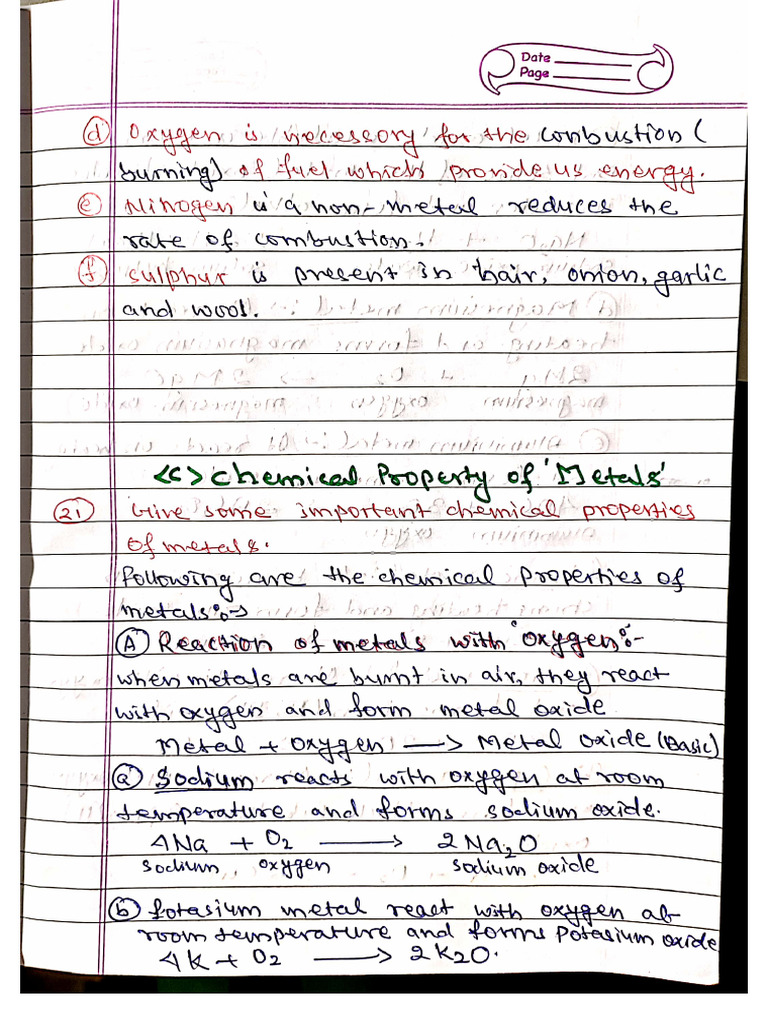 Date
Page
(d) Oxygen is necessory for the combustion (
burning) of fuel which provide us energy.
(e) Nitrogen is a non-metal reduces the
rate of combustion.
(f) sulphur is present in hair, onion, garlic
and wool.
<C> Chemical Property of 'Metals'
(21) Give some important chemical properties
of metals.
following are the chemical properties of
metals:→
(A) Reaction of metals with 'oxygen':-
when metals are burnt in air, they react
with oxygen and form metal oxide
Metal + Oxygen → Metal oxide (Basic)
(a) Sodium reacts with oxygen at room
temperature and forms sodium oxide.
4Na + O2 → 2Na2O
sodium oxygen sodium oxide
(b) Potasium metal react with oxygen at
room temperature and forms Potasium oxide
4K + O2 → 2K2O.